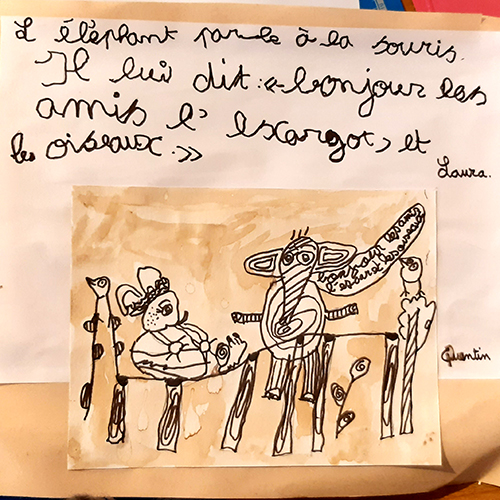 L éléphant parle à la souris.
Il lui dit : « bonjour les
amis l' escargot, et
les oiseaux. »
Laura.
bonjour les amis
et les
Quentin